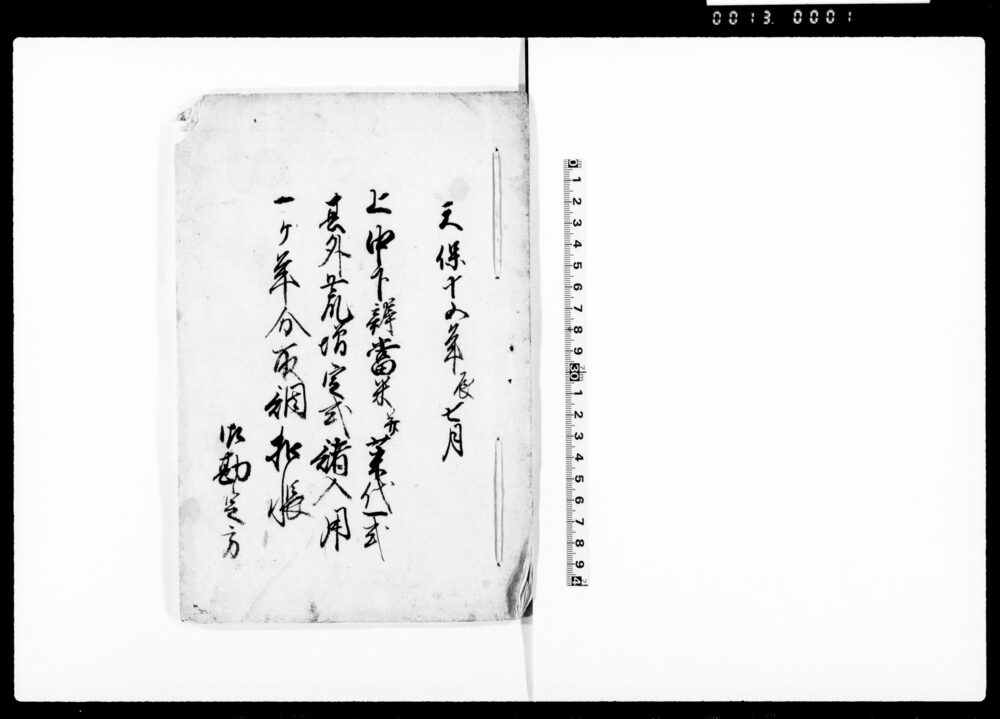 0013 0001
天保十五年辰七月
上中下辨當米并菜代一式
其外荒増定式諸入用
一ヶ年分取調扣帳
御勘定方
0 1 2 3 4 5 6 7 8 9 30 1 2 3 4 5 6 7 8 9 4